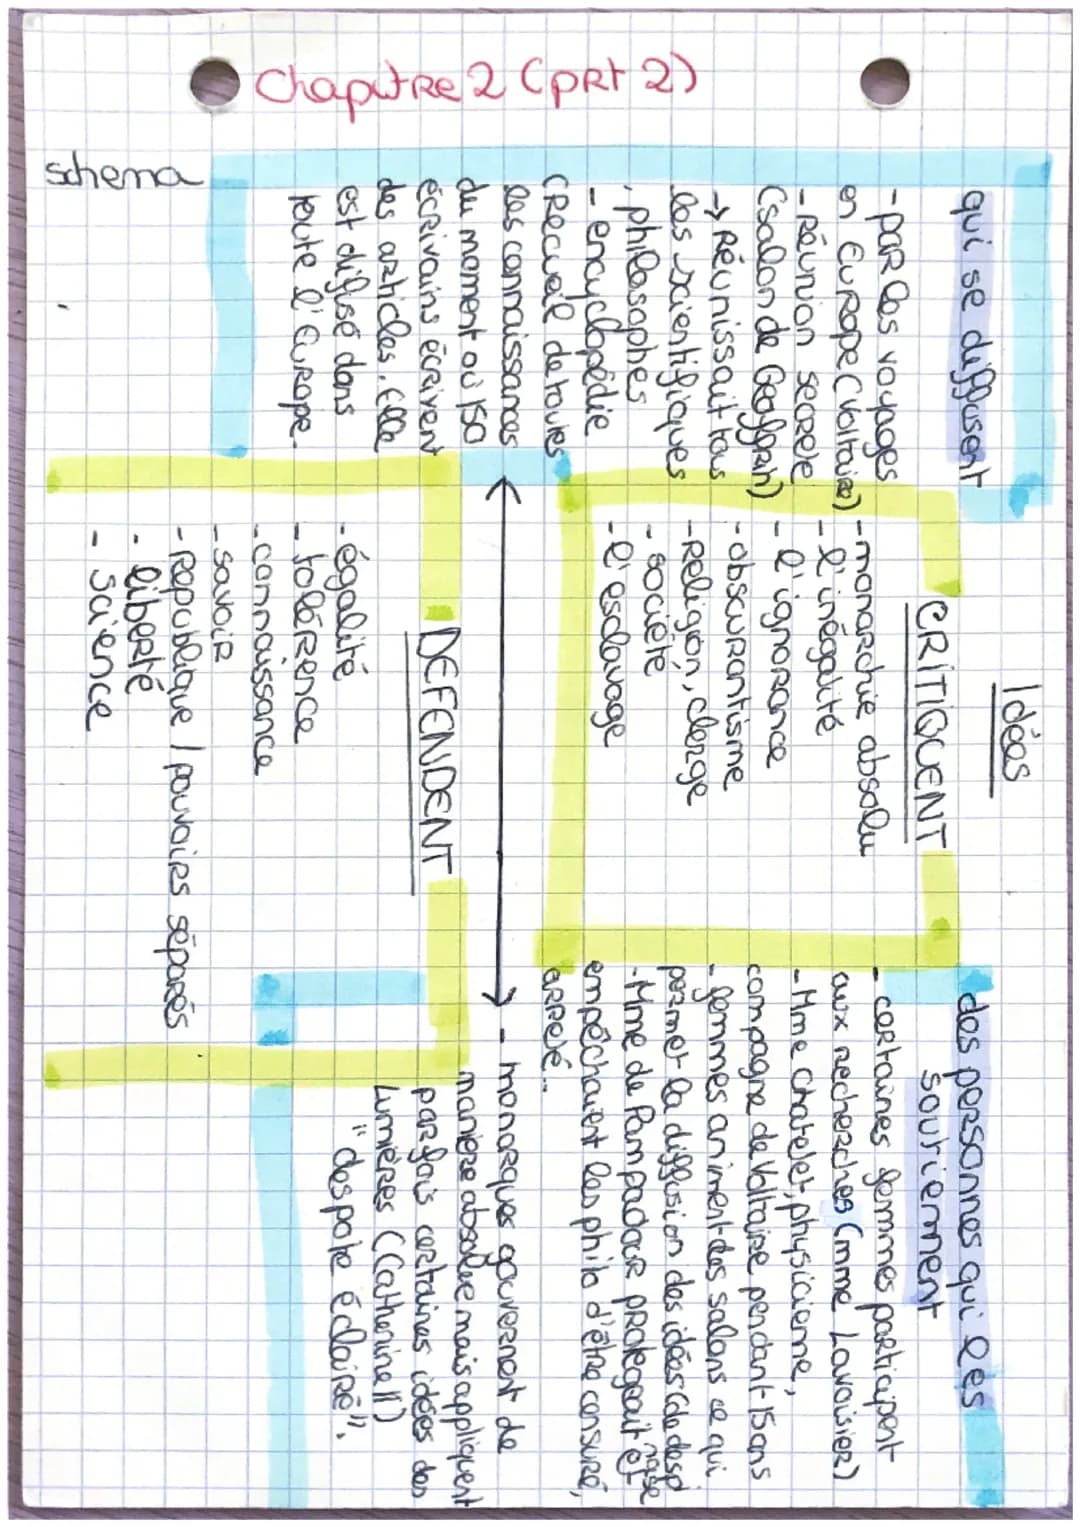 Chapitre 2 (pRt 2)
schema
Idées
qui se diffusent
- par les voyages
en Europe (Voltaire)
- Réunion secrète
(salon de Geoffrin)
→ Réunissait tous
les scientifiques
, philosophes
- encyclopédie
(Recueil de toutes
les connaissances
du moment où 150
écrivains écrivent
des articles. Elle
est difusé dans
toute l'Europe.
CRITIQUENT
- monarchie absolu
- l'inégalité
- l'ignorance
- obscurantisme
- Religion, clerge
- société
- l'esclavage
DEFENDENT
- égalité
- tolérence
- connaissance
- savoir
- Republique / pouvoirs séparés
- liberté
- Science
des personnes qui les
soutiennent
- certaines femmes participent
aux recherches (mme Lavoisier)
- Mme Chatelet, physicienne,
compagne de Voltaire pendant 15 ans
- femmes animent des salons ce qui
permet la diffusion des idées (de
- Mme de Pompadour protegeait et
empêchaient les philo d'être censuré,
arreté...
- monarques gouvernent de
manière absolue mais appliquent
parfois certaines idées des
Lumières (Catherine II)
"despote éclairé".